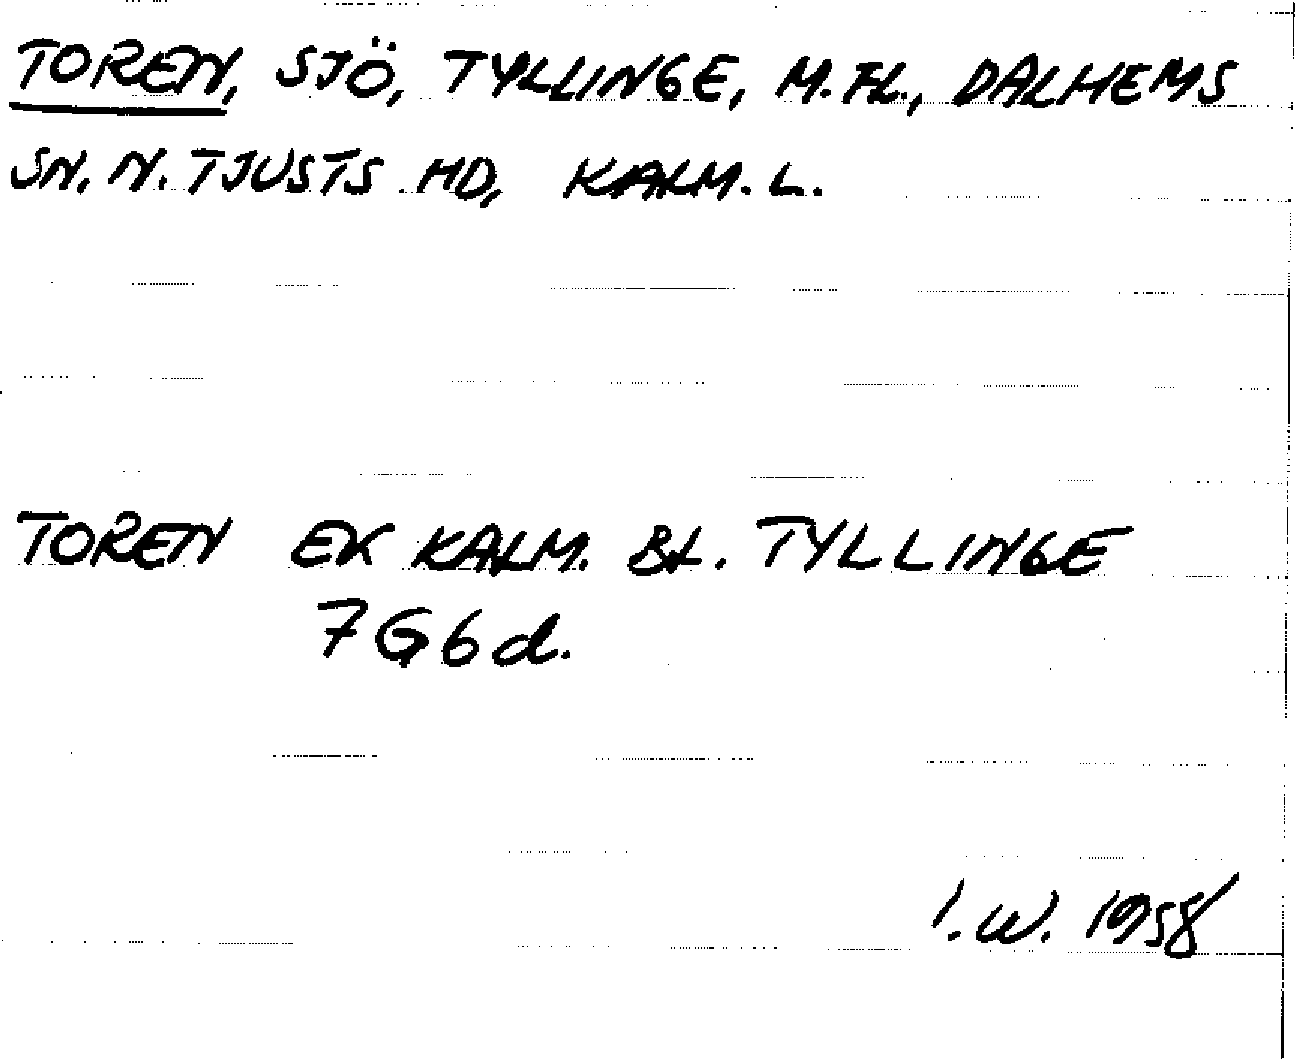 TOREN, SJÖ, TYLLINGE, M.FL., DALHEMS
SN. N. TJUSTS HD, KALM. L.
TOREN EK KALM. BL. TYLLINGE
7G6d.
I.W. 1958